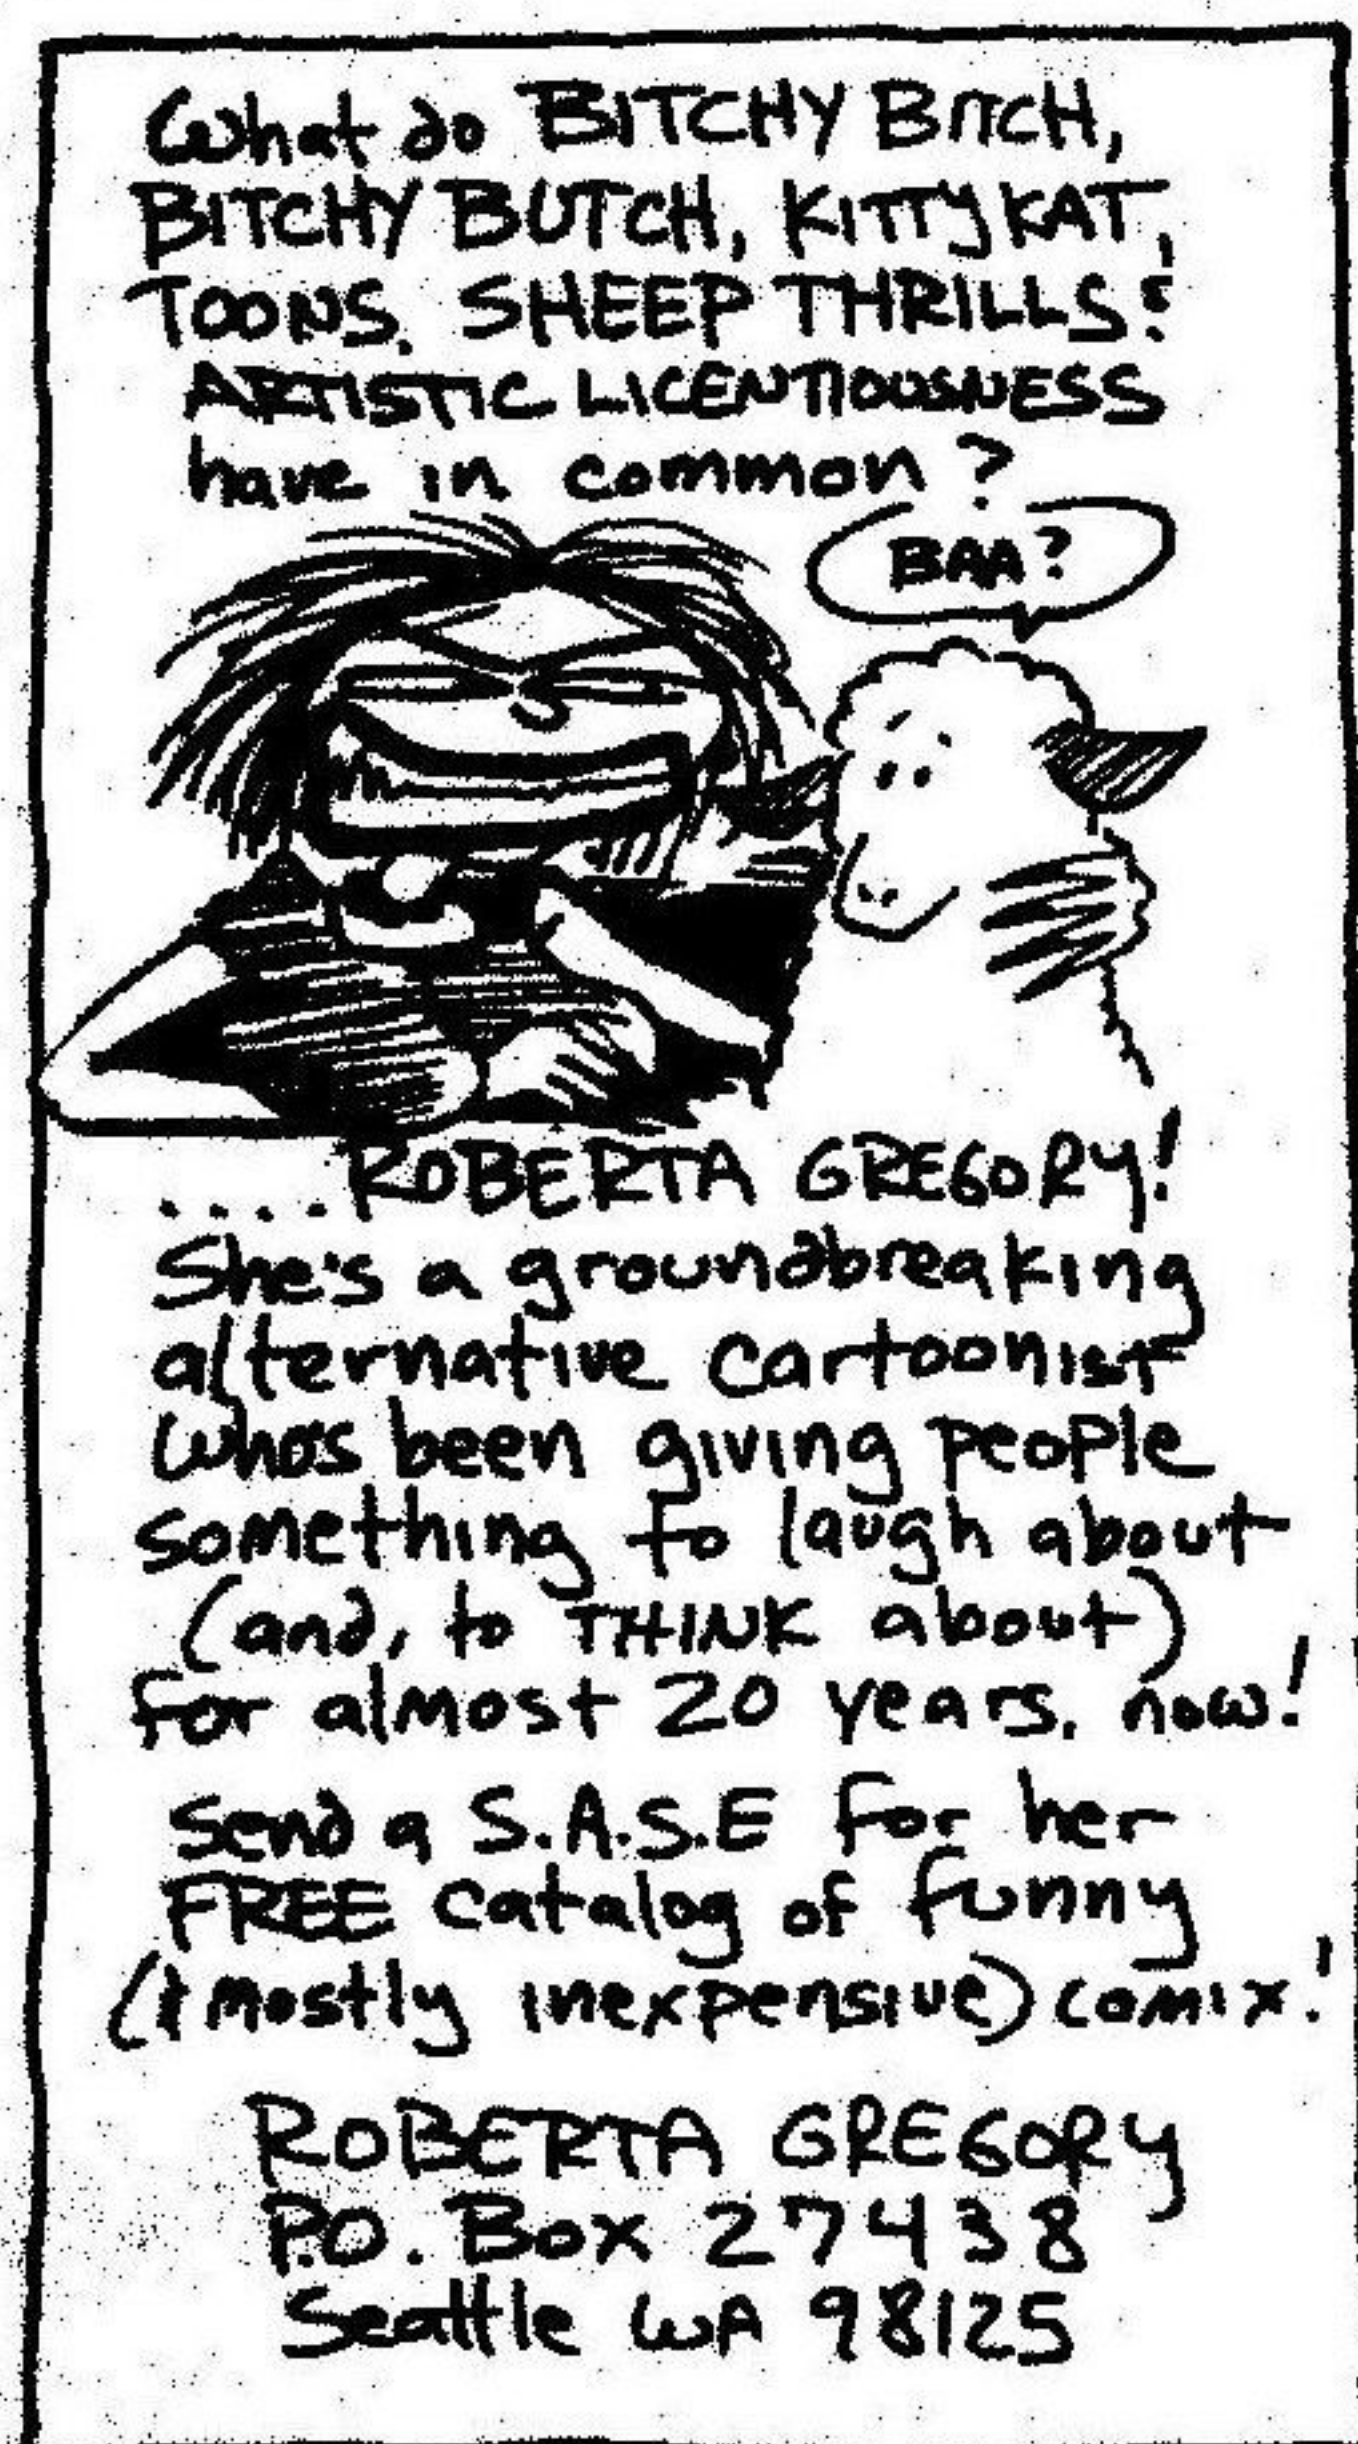 What do BITCHY BITCH,
BITCHY BUTCH, KITTY KAT,
TOONS, SHEEP THRILLS &
ARTISTIC LICENTIOUSNESS
have in common?
BAA?
.....ROBERTA GREGORY!
She's a groundbreaking
alternative cartoonist
who's been giving people
something to laugh about
(and, to THINK about)
for almost 20 years, now!
Send a S.A.S.E for her
FREE catalog of funny
(& mostly inexpensive) comix!
ROBERTA GREGORY
P.O. Box 27438
Seattle WA 98125